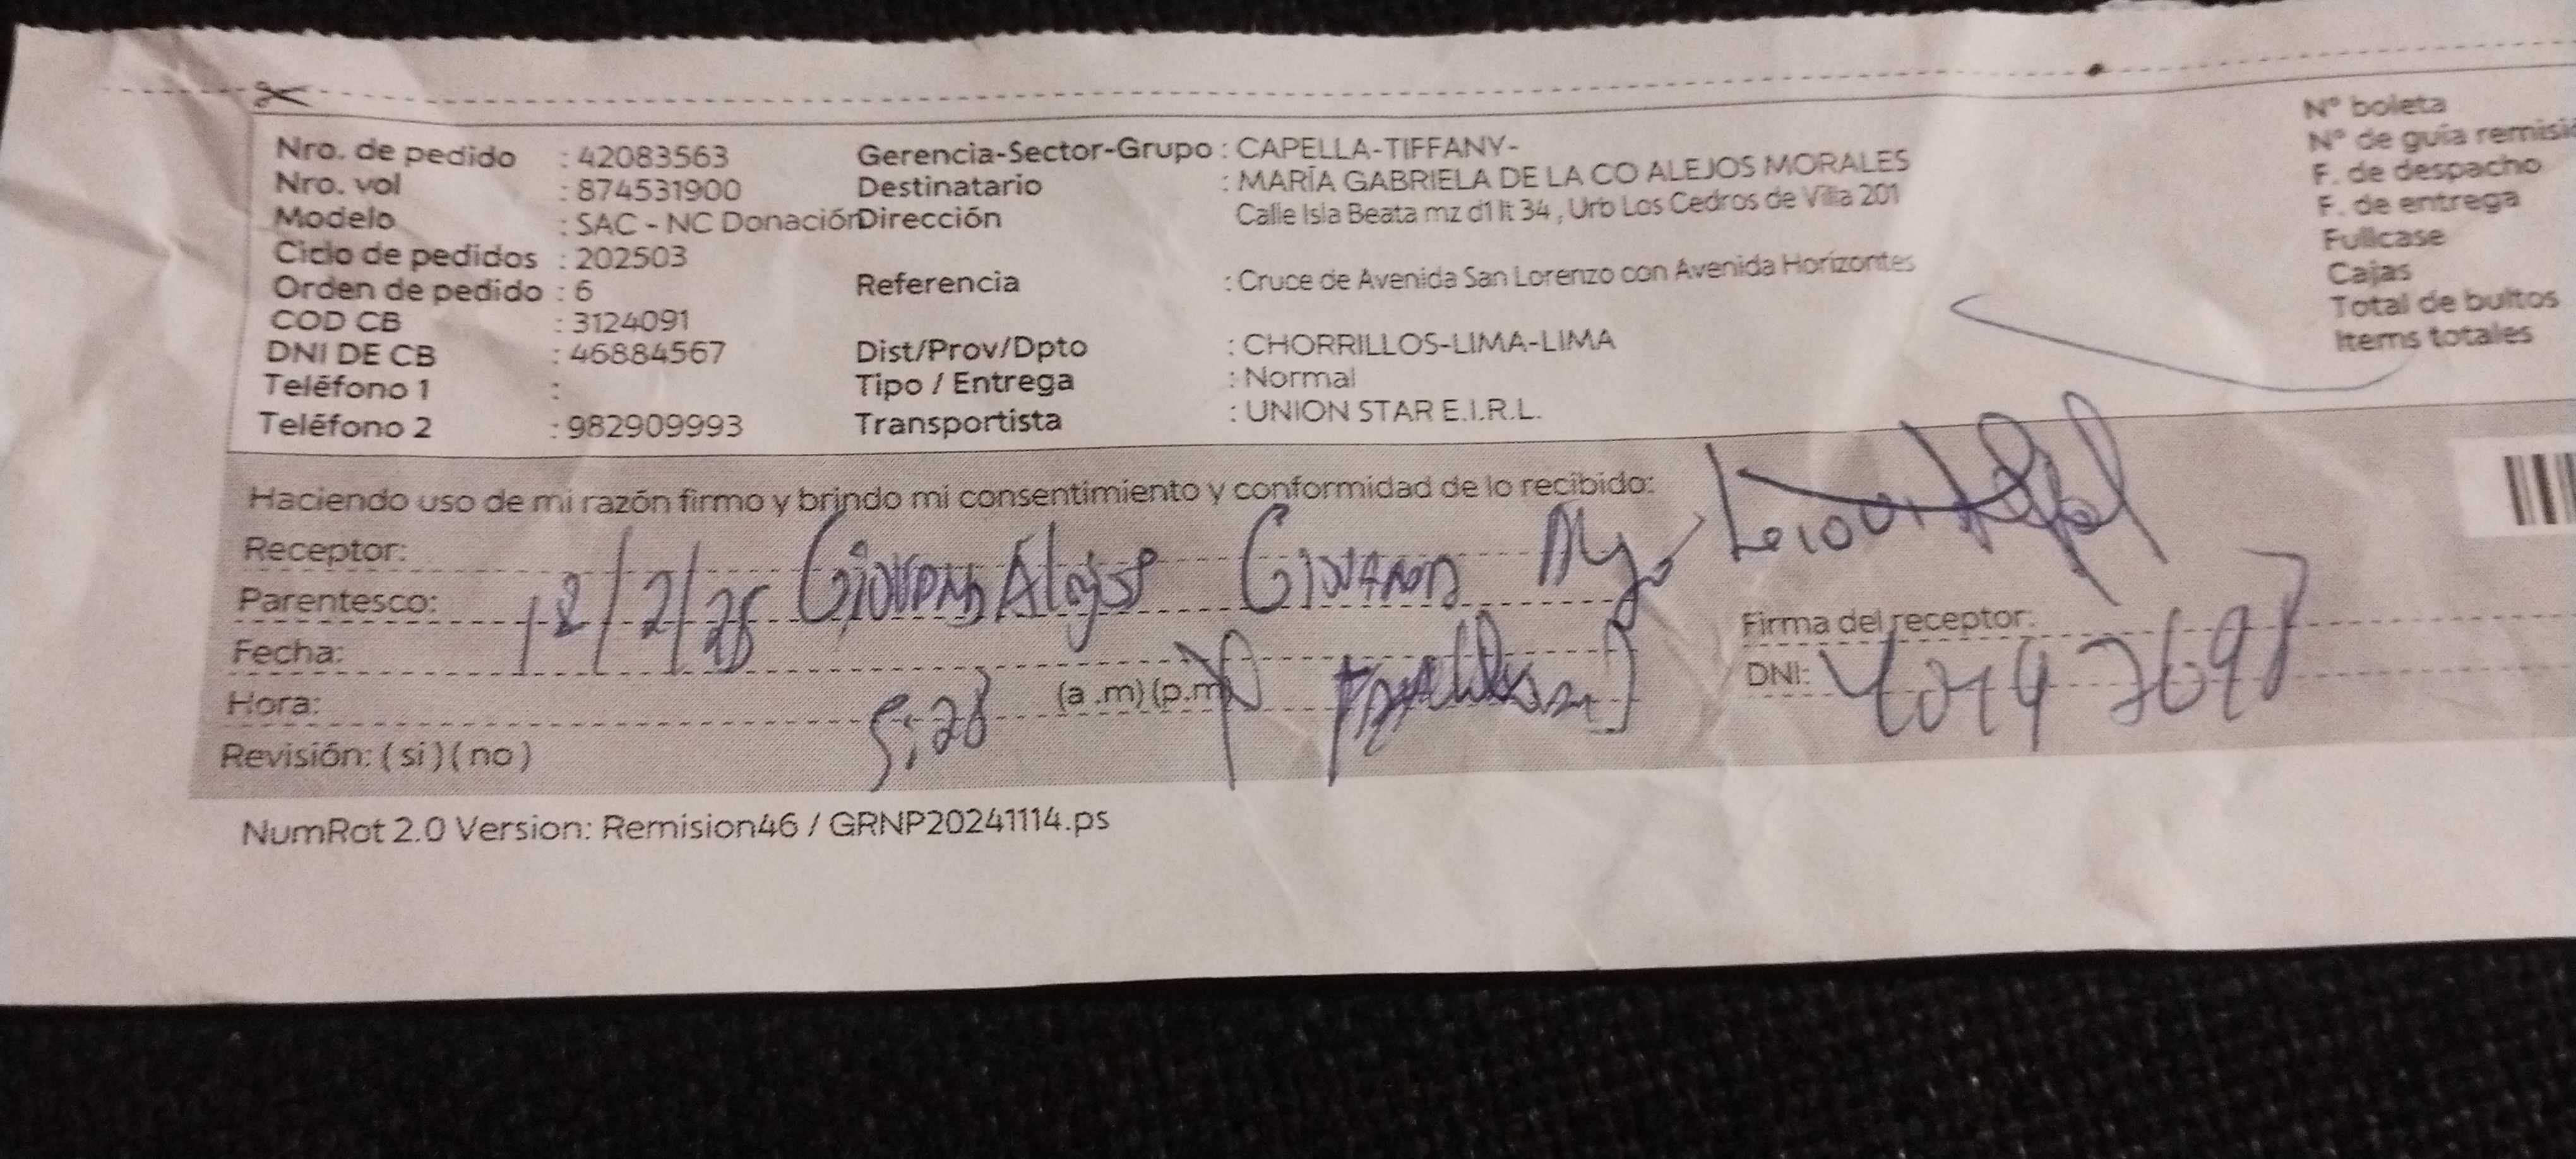 Nro. de pedido : 42083563
Nro. vol : 874531900
Modelo : SAC - NC Donación
Ciclo de pedidos : 202503
Orden de pedido : 6
COD CB : 3124091
DNI DE CB : 46884567
Teléfono 1 :
Teléfono 2 : 982909993
Gerencia-Sector-Grupo : CAPELLA-TIFFANY-
Destinatario : MARÍA GABRIELA DE LA CO ALEJOS MORALES
Dirección Calle Isla Beata mz d1 lt 34 , Urb Los Cedros de Villa 201
Referencia : Cruce de Avenida San Lorenzo con Avenida Horizontes
Dist/Prov/Dpto : CHORRILLOS-LIMA-LIMA
Tipo / Entrega : Normal
Transportista : UNION STAR E.I.R.L.
N° boleta
N° de guía remisi
F. de despacho
F. de entrega
Fullcase
Cajas
Total de bultos
Items totales
Haciendo uso de mi razón firmo y brindo mi consentimiento y conformidad de lo recibido:
Receptor:
Parentesco:
Fecha: 12/2/25
Hora: 5:28 (a .m) (p.m
Revisión: ( si ) ( no )
Firma del receptor:
DNI:
NumRot 2.0 Version: Remision46 / GRNP20241114.ps